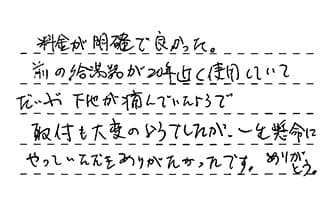 料金が明確で良かった。
前の給湯器が20年近く使用していて
だいぶ下地が痛んでいたようで
取付も大変のようでしたが、一生懸命に
やっていただきありがたかったです。ありがとう。